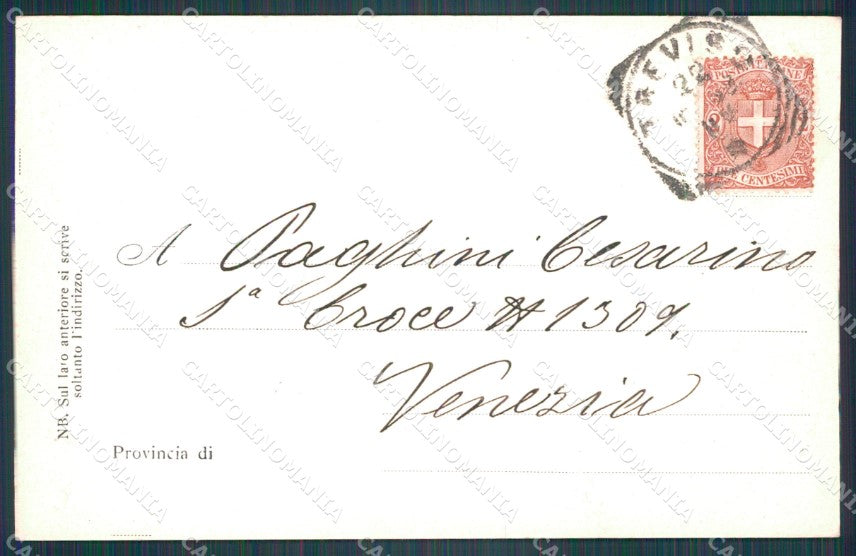 TREVISO
22
POSTE ITALIANE
DUE CENTESIMI
A Paghini Cesarino
Sª Croce N 1309.
Venezia
Provincia di
NB. Sul lato anteriore si scrive
soltanto l'indirizzo.
CARTOLINOMANIA